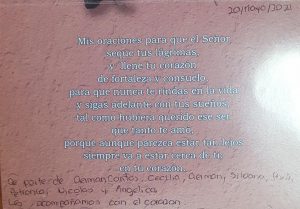 20/Mayo/2021
Mis oraciones para que el Señor
seque tus lágrimas,
y llene tu corazón
de fortaleza y consuelo,
para que nunca te rindas en la vida
y sigas adelante con tus sueños,
tal como hubiera querido ese ser
que tanto te amó,
porque aunque parezca estar tan lejos
siempre va a estar cerca de ti,
en tu corazón.
De parte de German Cantos, Cecilia, German, Silvana,
Nicolas y Angelica
Los acompañamos con el corazon